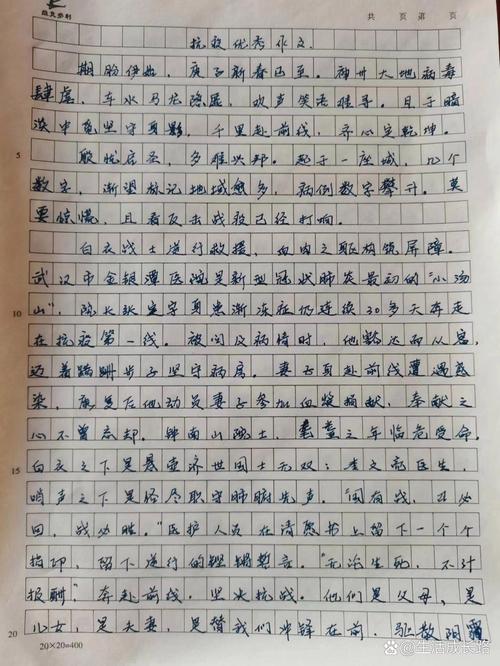 共 页 第 页
抗疫优秀作文.
期盼伊始,庚子新春已至。神州大地病毒
肆虐,车水马龙隐匿,欢声笑语难寻。且于暗
淡中竟坚守身影,千里赴前线,齐心定乾坤。
5
殷忧启圣,多难兴邦。起于一座城,几个
数字,渐望标记地域愈多,病例数字攀升。莫
要惊慌,且看反击战役已经打响。
白衣战士逆行救援,血肉之躯构筑屏障。
武汉市金银潭医院是新型冠状肺炎最初的"小汤
山",院长张定宇身患渐冻症仍连续30多天奔走
10
在抗疫第一线。被问及病情时,他豁达而从容,
迈着蹒跚步子坚守病房。妻子身赴前线遭遇感
染,康复后他动员妻子参加血浆捐献,奉献之
心不曾忘却。钟南山院士,耄耋之年临危受命,
15
白衣之下是悬壶济世国士无双;李文亮医生,
哨声之下是恪尽职守肺腑先声。"闻有战,召必
回,战必胜。"医护人员在请愿书上留下一个个
指印,留下逆行的铿锵誓言。"无论生死,不计
报酬",奔赴前线,坚决抗战。他们是父母,是
20
儿女,是夫妻,是替我们冲锋在前,驱散阴霾
20×20=400
@生活成长路